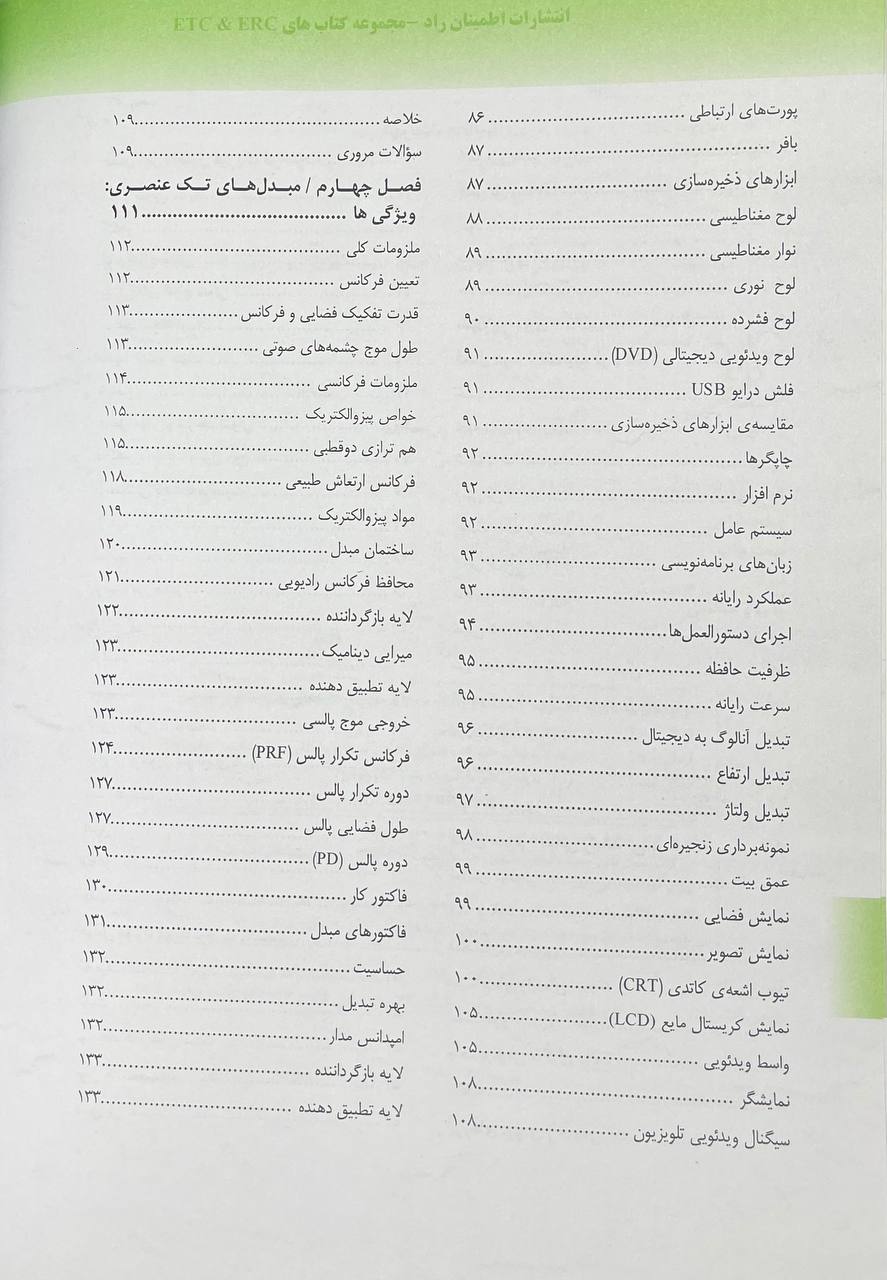 انتشارات اطمینان راد -مجموعه کتاب های ETC & ERC
پورت‌های ارتباطی ........ ۸۶
بافر ........ ۸۷
ابزارهای ذخیره‌سازی ........ ۸۷
لوح مغناطیسی ........ ۸۸
نوار مغناطیسی ........ ۸۹
لوح نوری ........ ۸۹
لوح فشرده ........ ۹۰
لوح ویدئویی دیجیتالی (DVD) ........ ۹۱
فلش درایو USB ........ ۹۱
مقایسه‌ی ابزارهای ذخیره‌سازی ........ ۹۱
چاپگرها ........ ۹۲
نرم افزار ........ ۹۲
سیستم عامل ........ ۹۲
زبان‌های برنامه‌نویسی ........ ۹۳
عملکرد رایانه ........ ۹۳
اجرای دستورالعمل‌ها ........ ۹۴
ظرفیت حافظه ........ ۹۵
سرعت رایانه ........ ۹۵
تبدیل آنالوگ به دیجیتال ........ ۹۶
تبدیل ارتفاع ........ ۹۶
تبدیل ولتاژ ........ ۹۷
نمونه‌برداری زنجیره‌ای ........ ۹۸
عمق بیت ........ ۹۹
نمایش فضایی ........ ۹۹
نمایش تصویر ........ ۱۰۰
تیوب اشعه‌ی کاتدی (CRT) ........ ۱۰۰
نمایش کریستال مایع (LCD) ........ ۱۰۵
واسط ویدئویی ........ ۱۰۵
نمایشگر ........ ۱۰۸
سیگنال ویدئویی تلویزیون ........ ۱۰۸
خلاصه ........ ۱۰۹
سؤالات مروری ........ ۱۰۹
فصل چهارم / مبدل‌های تک عنصری:
ویژگی ها ........ ۱۱۱
ملزومات کلی ........ ۱۱۲
تعیین فرکانس ........ ۱۱۲
قدرت تفکیک فضایی و فرکانس ........ ۱۱۳
طول موج چشمه‌های صوتی ........ ۱۱۳
ملزومات فرکانسی ........ ۱۱۴
خواص پیزوالکتریک ........ ۱۱۵
هم ترازی دوقطبی ........ ۱۱۵
فرکانس ارتعاش طبیعی ........ ۱۱۸
مواد پیزوالکتریک ........ ۱۱۹
ساختمان مبدل ........ ۱۲۰
محافظ فرکانس رادیویی ........ ۱۲۱
لایه بازگرداننده ........ ۱۲۲
میرایی دینامیک ........ ۱۲۳
لایه تطبیق دهنده ........ ۱۲۳
خروجی موج پالسی ........ ۱۲۳
فرکانس تکرار پالس (PRF) ........ ۱۲۴
دوره تکرار پالس ........ ۱۲۷
طول فضایی پالس ........ ۱۲۷
دوره پالس (PD) ........ ۱۲۹
فاکتور کار ........ ۱۳۰
فاکتورهای مبدل ........ ۱۳۱
حساسیت ........ ۱۳۲
بهره تبدیل ........ ۱۳۲
امپدانس مدار ........ ۱۳۲
لایه بازگرداننده ........ ۱۳۳
لایه تطبیق دهنده ........ ۱۳۳